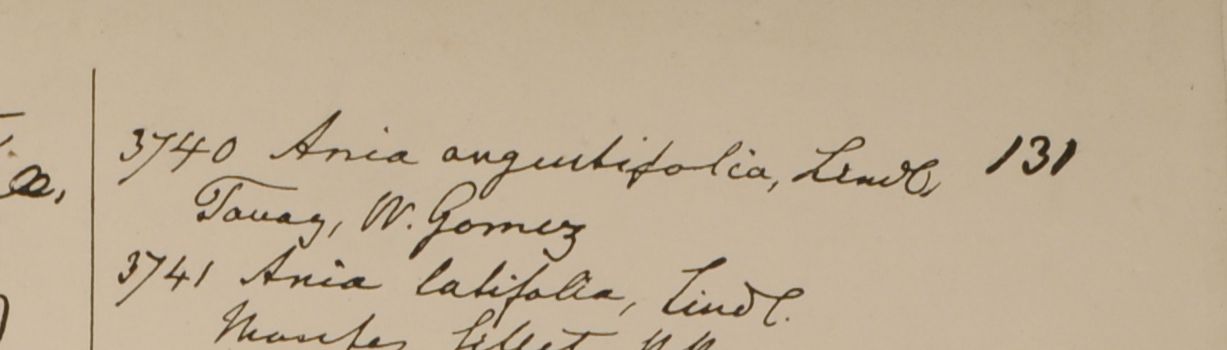 3740 Ania angustifolia, Lindl, 131
Tavay, W. Gomez
3741 Ania latifolia, Lindl.